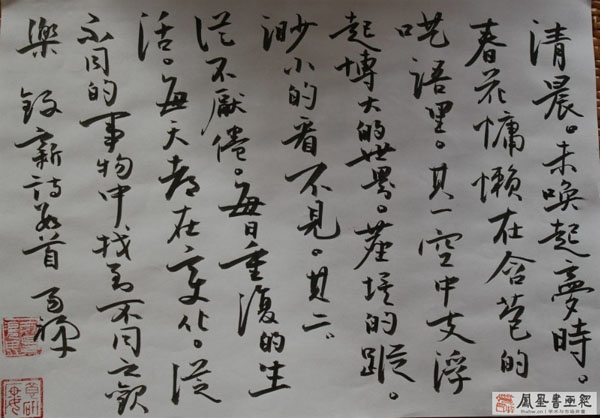 清晨。未喚起夢時。
春花慵懶在含苞的
呓語里。其一空中支浮
起博大的世界。塵埃的蹤。
渺小的看不見。其二。
從不厭倦。每日重復的生
活。每天都在變化。從
不同的事物中找到不同之歡
樂 新詩 首
鳳凰書畫